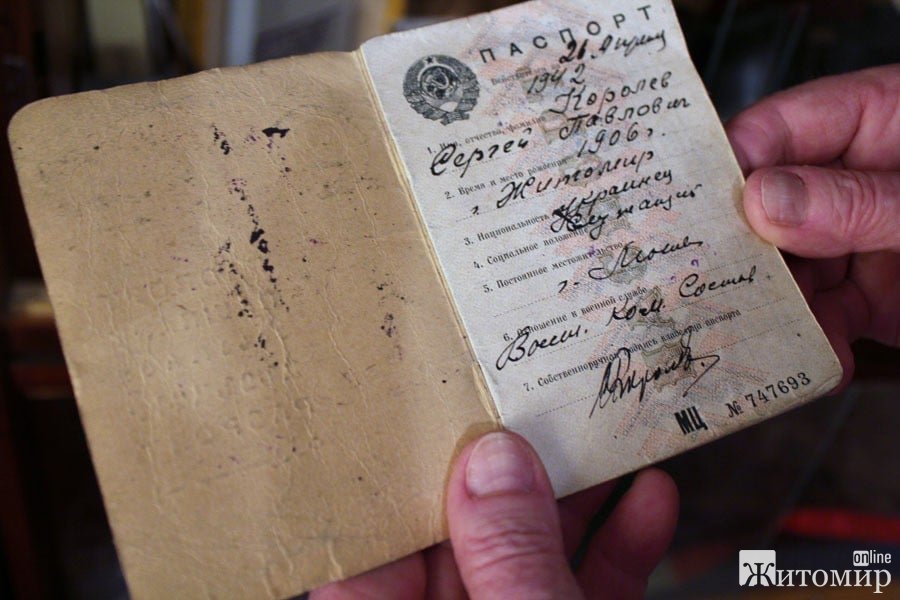 ПАСПОРТ
26 Апреля
1942
1. Имя, отчество, фамилия Королев
Сергей Павлович
2. Время и место рождения 1906 г.
г. Житомир
3. Национальность украинец
4. Социальное положение Служащий
5. Постоянное местожительство
г.
6. Отношение к военной службе
Воен. ком. Состав
7. Собственноручная подпись владельца паспорта
МЦ № 747693
Житомир online